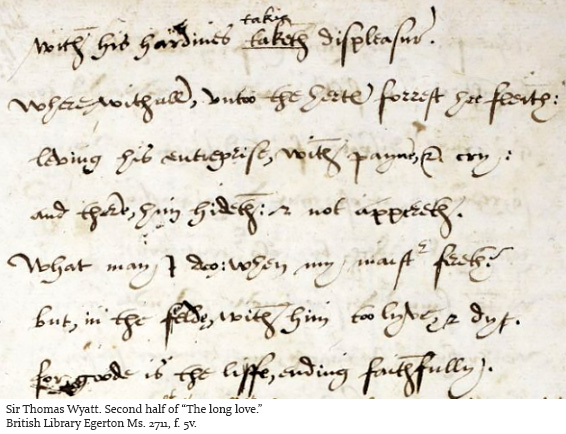 takin
with his hardines taketh displeasur.
Wherewithall, vntoo the hertes forrest hee fleith:
leving his entreprise, with payne, & cry:
and there, him hideth: & not appereth.
What may I doo: when my maister fereth:
but, in the felde, with him too lyve, & dye.
for, goode is the liffe, ending faithfully.
Sir Thomas Wyatt. Second half of “The long love.”
British Library Egerton Ms. 2711, f. 5v.